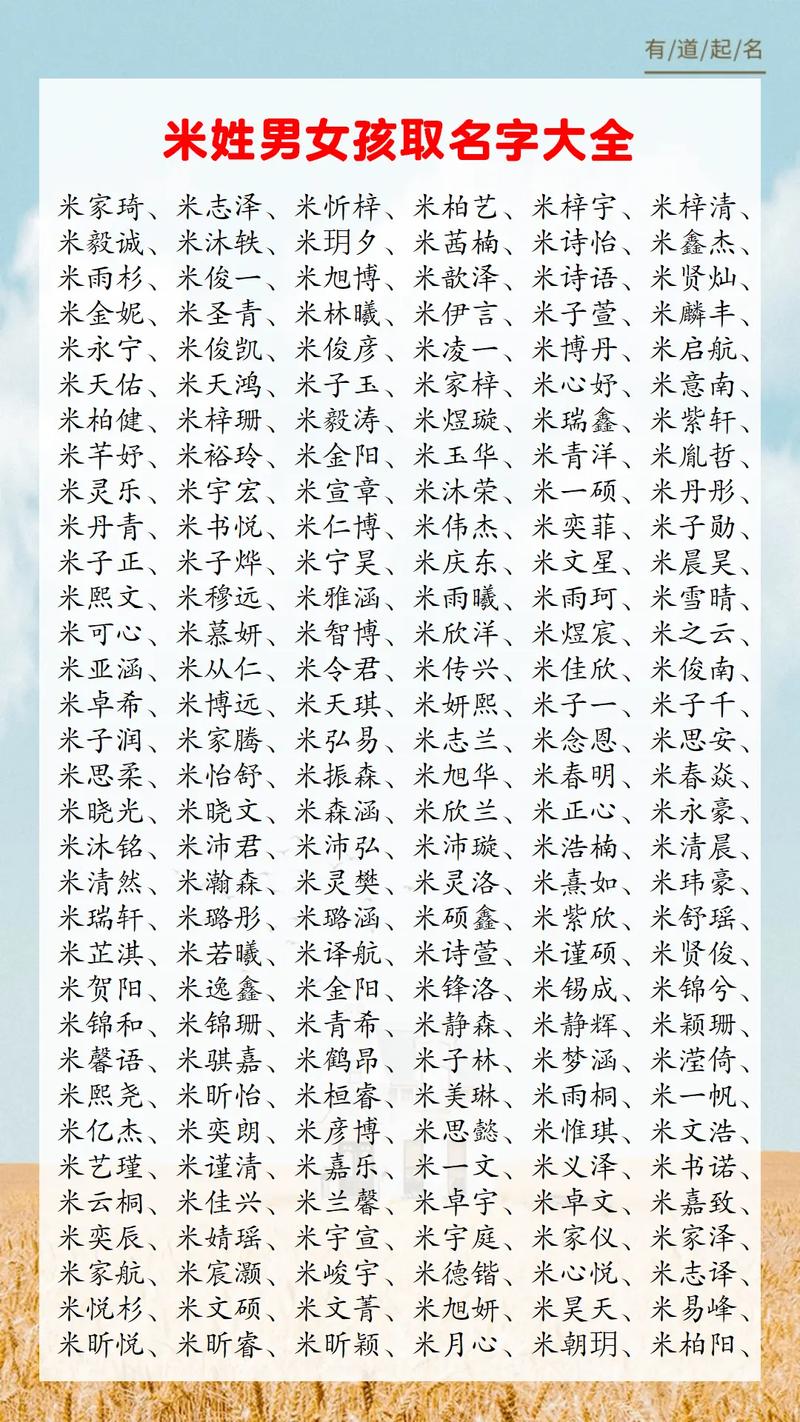 有/道/起/名
米姓男女孩取名字大全
米家琦、米志泽、米忻梓、米柏艺、米梓宇、米梓清、
米毅诚、米沐轶、米玥夕、米茜楠、米诗怡、米鑫杰、
米雨杉、米俊一、米旭博、米歆泽、米诗语、米贤灿、
米金妮、米圣青、米林曦、米伊言、米子萱、米麟丰、
米永宁、米俊凯、米俊彦、米凌一、米博丹、米启航、
米天佑、米天鸿、米子玉、米家梓、米心妤、米意南、
米柏健、米梓珊、米毅涛、米煜璇、米瑞鑫、米紫轩、
米芊妤、米裕玲、米金阳、米玉华、米青洋、米胤哲、
米灵乐、米宇宏、米宣章、米沐荣、米一硕、米丹彤、
米丹青、米书悦、米仁博、米伟杰、米奕菲、米子勋、
米子正、米子烨、米宁昊、米庆东、米文星、米晨昊、
米熙文、米穆远、米雅涵、米雨曦、米雨珂、米雪晴、
米可心、米慕妍、米智博、米欣洋、米煜宸、米之云、
米亚涵、米从仁、米令君、米传兴、米佳欣、米俊南、
米卓希、米博远、米天琪、米妍熙、米子一、米子千、
米子润、米家腾、米弘易、米志兰、米念恩、米思安、
米思柔、米怡舒、米振森、米旭华、米春明、米春焱、
米晓光、米晓文、米森涵、米欣兰、米正心、米永豪、
米沐铭、米沛君、米沛弘、米沛璇、米浩楠、米清晨、
米清然、米瀚森、米灵樊、米灵洛、米熹如、米玮豪、
米瑞轩、米璐彤、米璐涵、米硕鑫、米紫欣、米舒瑶、
米芷淇、米若曦、米译航、米诗萱、米谨硕、米贤俊、
米贺阳、米逸鑫、米金阳、米锋洛、米锡成、米锦兮、
米锦和、米锦珊、米青希、米静森、米静辉、米颖珊、
米馨语、米骐嘉、米鹤昂、米子林、米梦涵、米滢倚、
米熙尧、米昕怡、米桓睿、米美琳、米雨桐、米一帆、
米亿杰、米奕朗、米彦博、米思懿、米惟琪、米文浩、
米艺瑾、米谨清、米嘉乐、米一文、米义泽、米书诺、
米云桐、米佳兴、米兰馨、米卓宇、米卓文、米嘉致、
米奕辰、米婧瑶、米宇宣、米宇庭、米家仪、米家泽、
米家航、米宸灏、米峻宇、米德锴、米心悦、米志译、
米悦杉、米文硕、米文菁、米旭妍、米昊天、米易峰、
米昕悦、米昕睿、米昕颖、米月心、米朝玥、米柏阳、